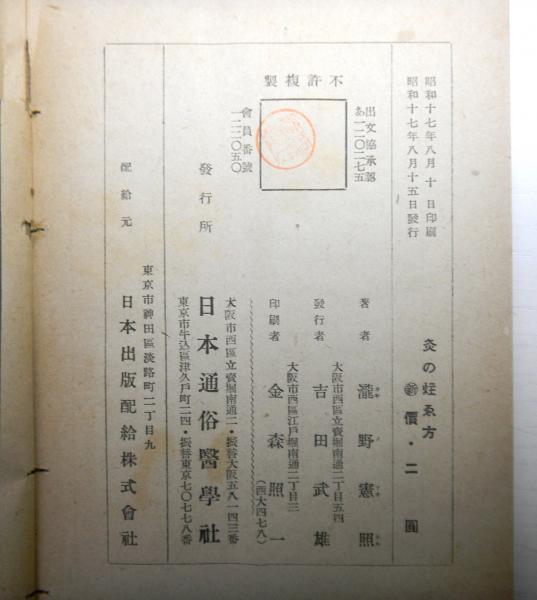 昭和十七年八月十日印刷
昭和十七年八月十五日發行
灸の姙ゑ方
價・二圓
不許複製
出文協承認
あ一一〇二七五
會員番號
一二二〇五〇
著者 瀧野憲照
大阪市西區立賣堀南通二丁目五四
發行者 吉田武雄
大阪市西區江戸堀南通二丁目三
印刷者 金森照一
(西大四七八)
發行所
大阪市西區立賣堀南通二・振替大阪五八一四三番
日本通俗醫學社
東京市牛込區津久戸町二四・振替東京七〇七七八番
配給元
東京市神田區淡路町二丁目九
日本出版配給株式會社